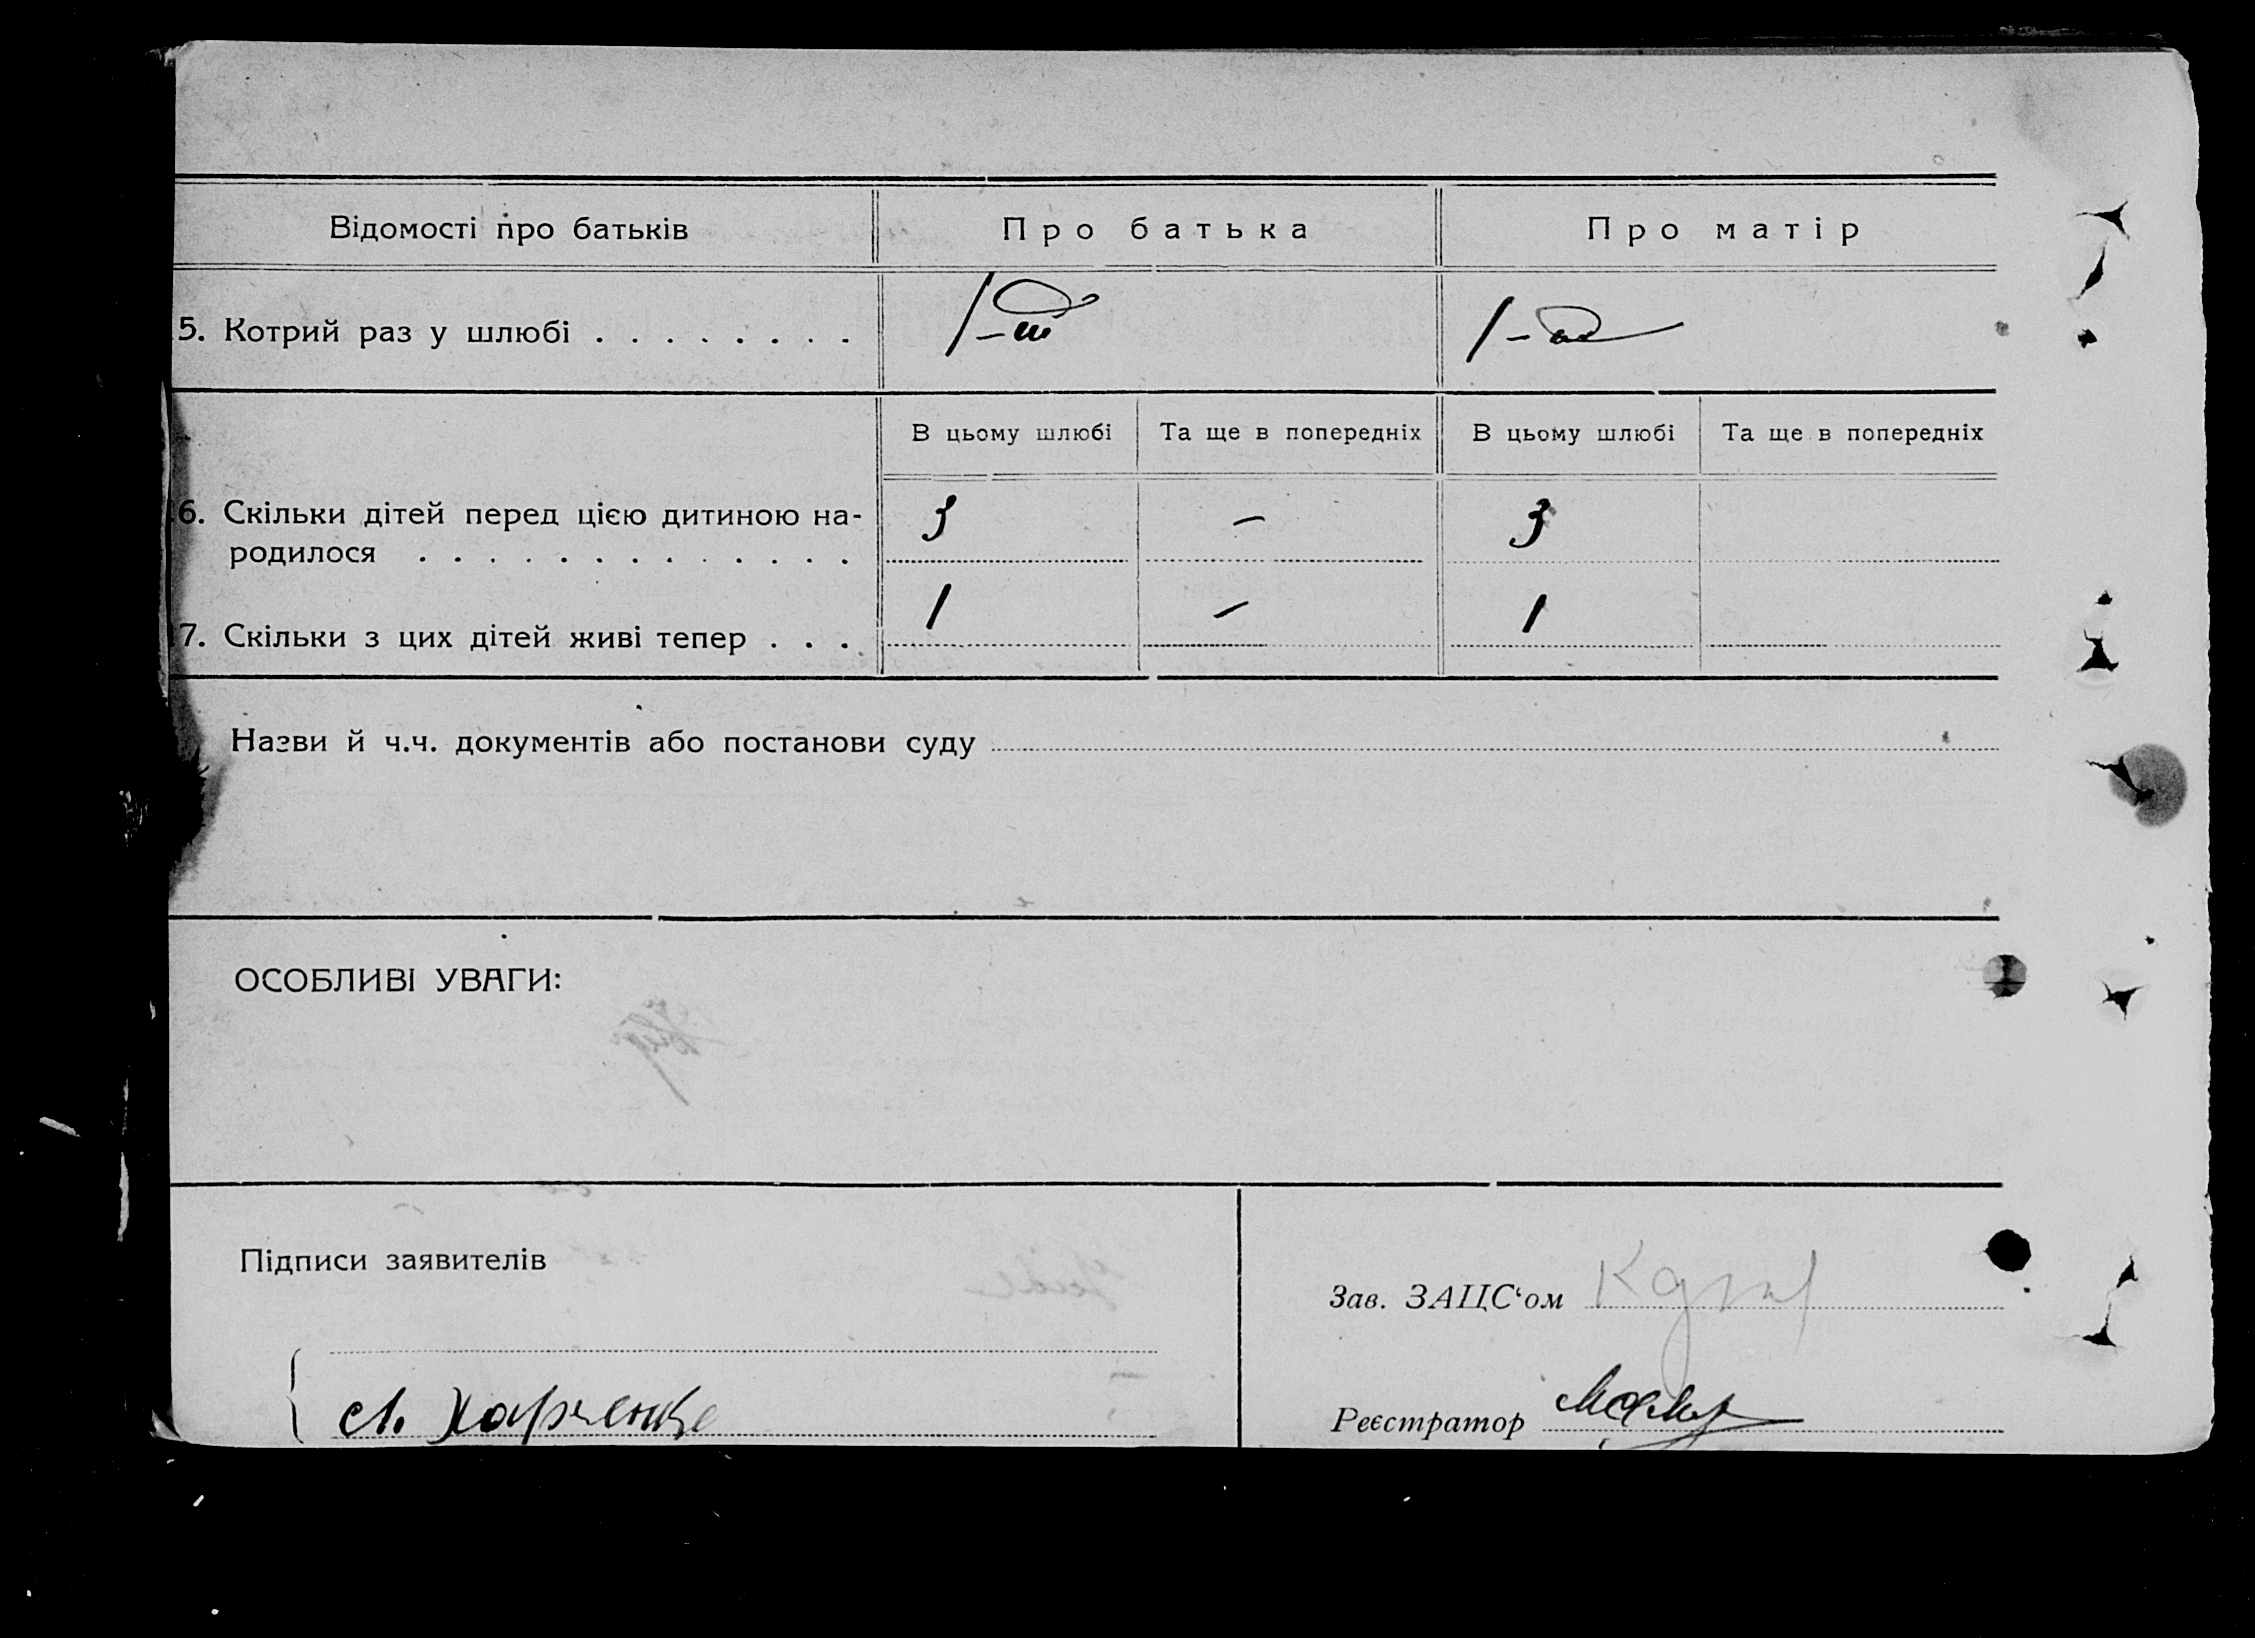 Відомості про батьків Про батька Про матір
5. Котрий раз у шлюбі . . . . . . . . 1-ий 1-ий
В цьому шлюбі Та ще в попередніх В цьому шлюбі Та ще в попередніх
6. Скільки дітей перед цією дитиною на- 3 – 3
родилося . . . . . . . . . . . . .
7. Скільки з цих дітей живі тепер . . . 1 – 1
Назви й ч.ч. документів або постанови суду
ОСОБЛИВІ УВАГИ:
Підписи заявителів
Зав. ЗАЦС‘ом
Харченко
Реєстратор